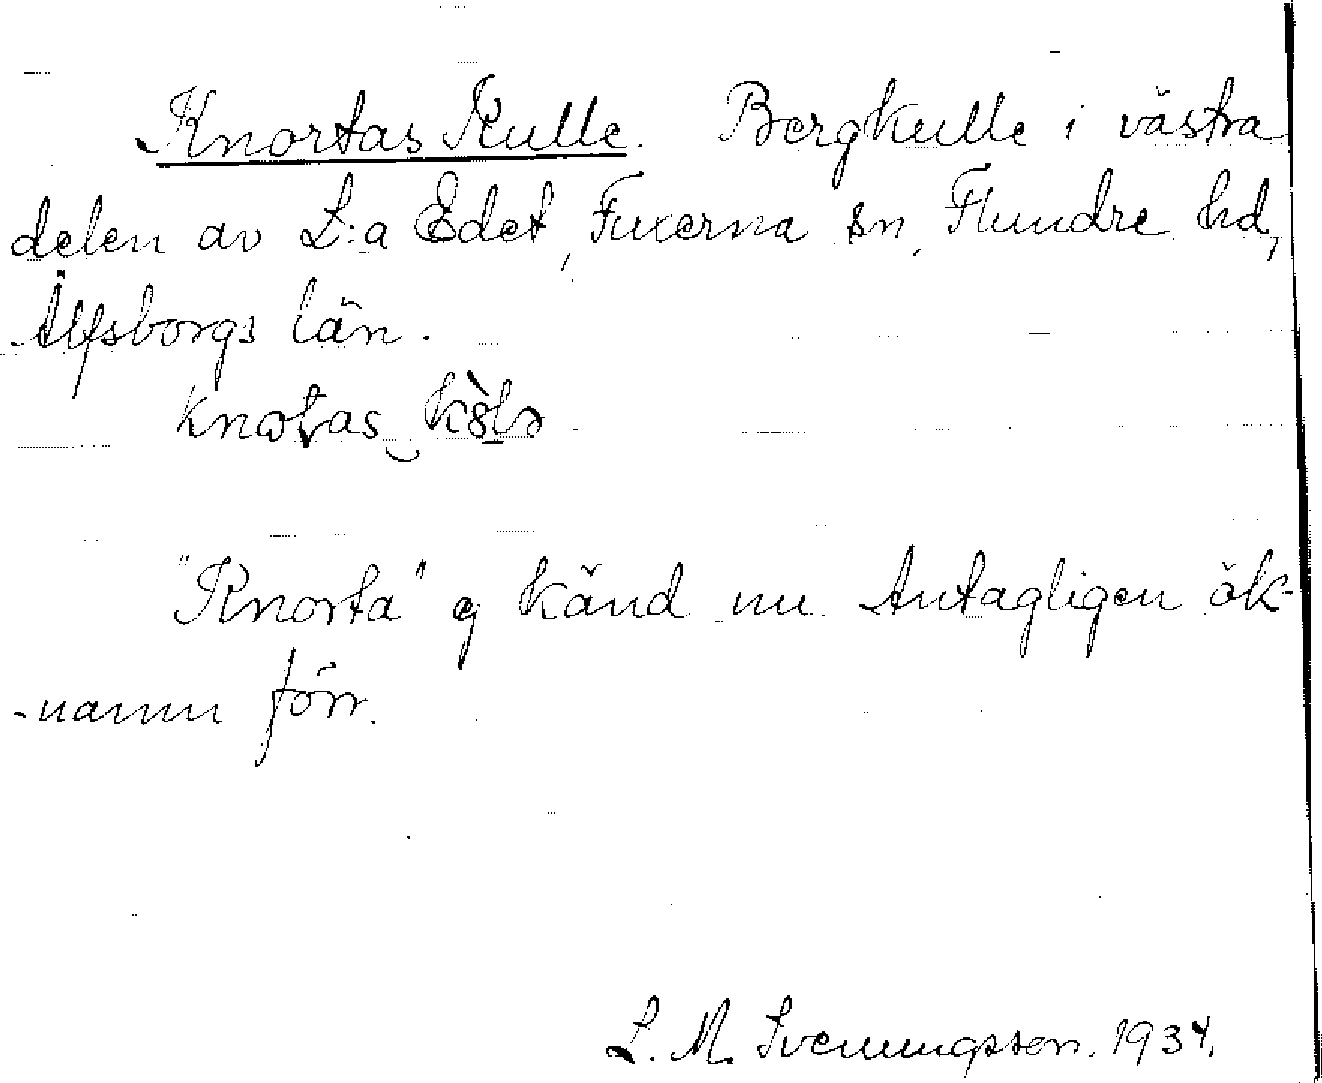 Knortas Kulle. Bergkulle i västra
delen av L:a Edet, Fuxerna sn, Flundre hd,
Älfsborgs län.
"Knorta" ej känd nu. Antagligen ök-
-namn förr.
L. M. Svenungsson. 1934.